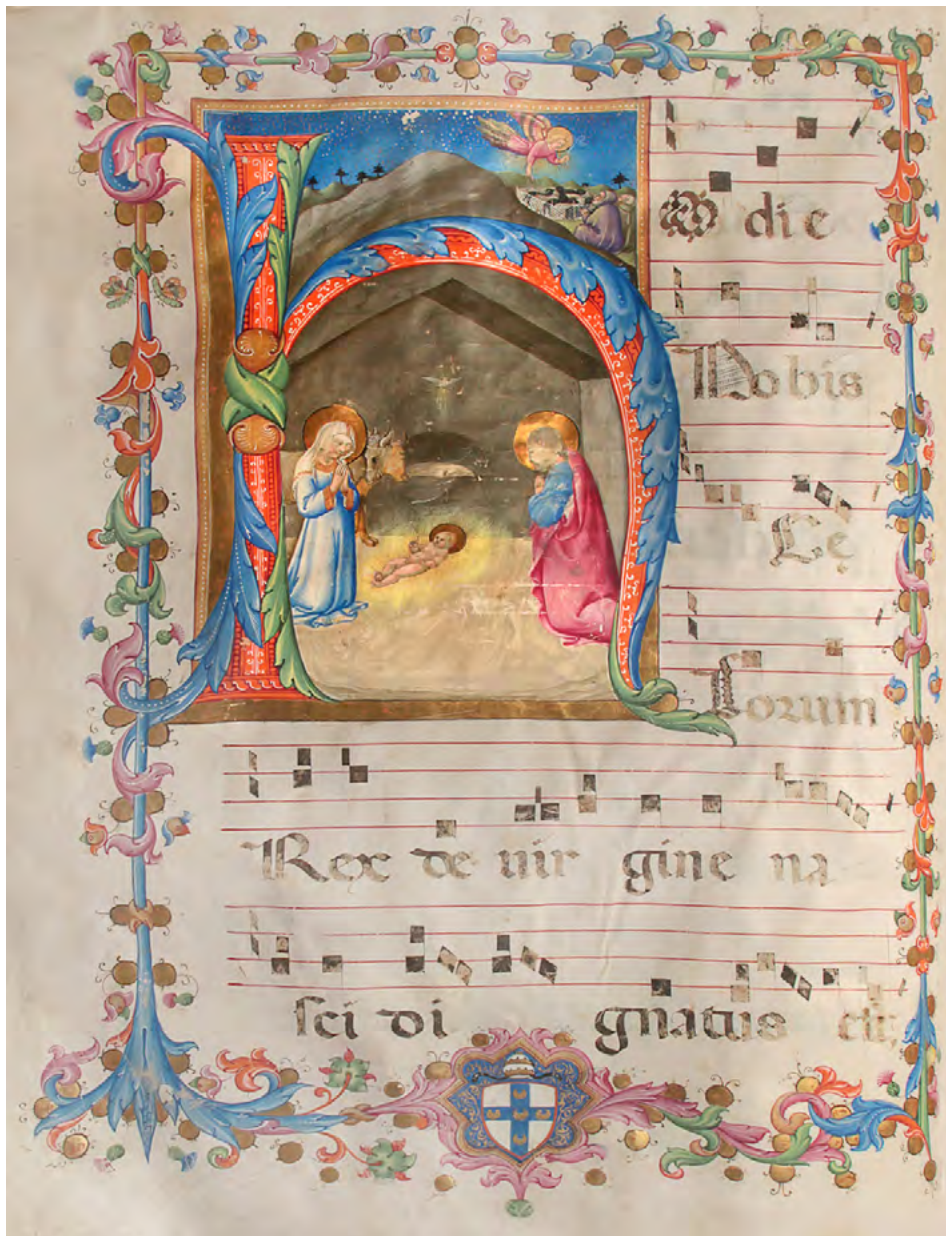 HO di e
Nobis
Ce
Lorum
Rex de uir gine na
sci di gnatus est